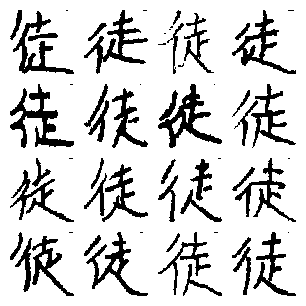 徒徒徒徒
徒徒徒徒
徒徒徒徒
徒徒徒徒